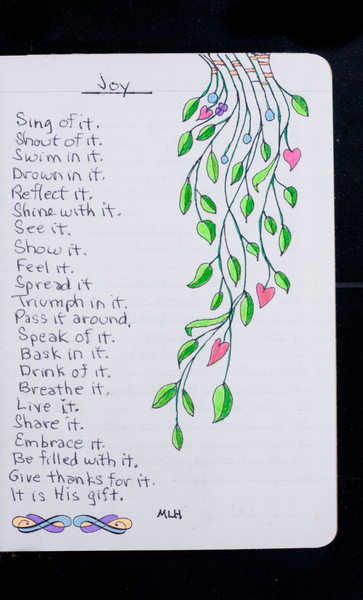 Joy
Sing of it.
Shout of it.
Swim in it.
Drown in it.
Reflect it.
Shine with it.
See it.
Show it.
Feel it.
Spread it
Triumph in it.
Pass it around.
Speak of it.
Bask in it.
Drink of it.
Breathe it.
Live it.
Share it.
Embrace it.
Be filled with it.
Give thanks for it.
It is His gift.
MLH